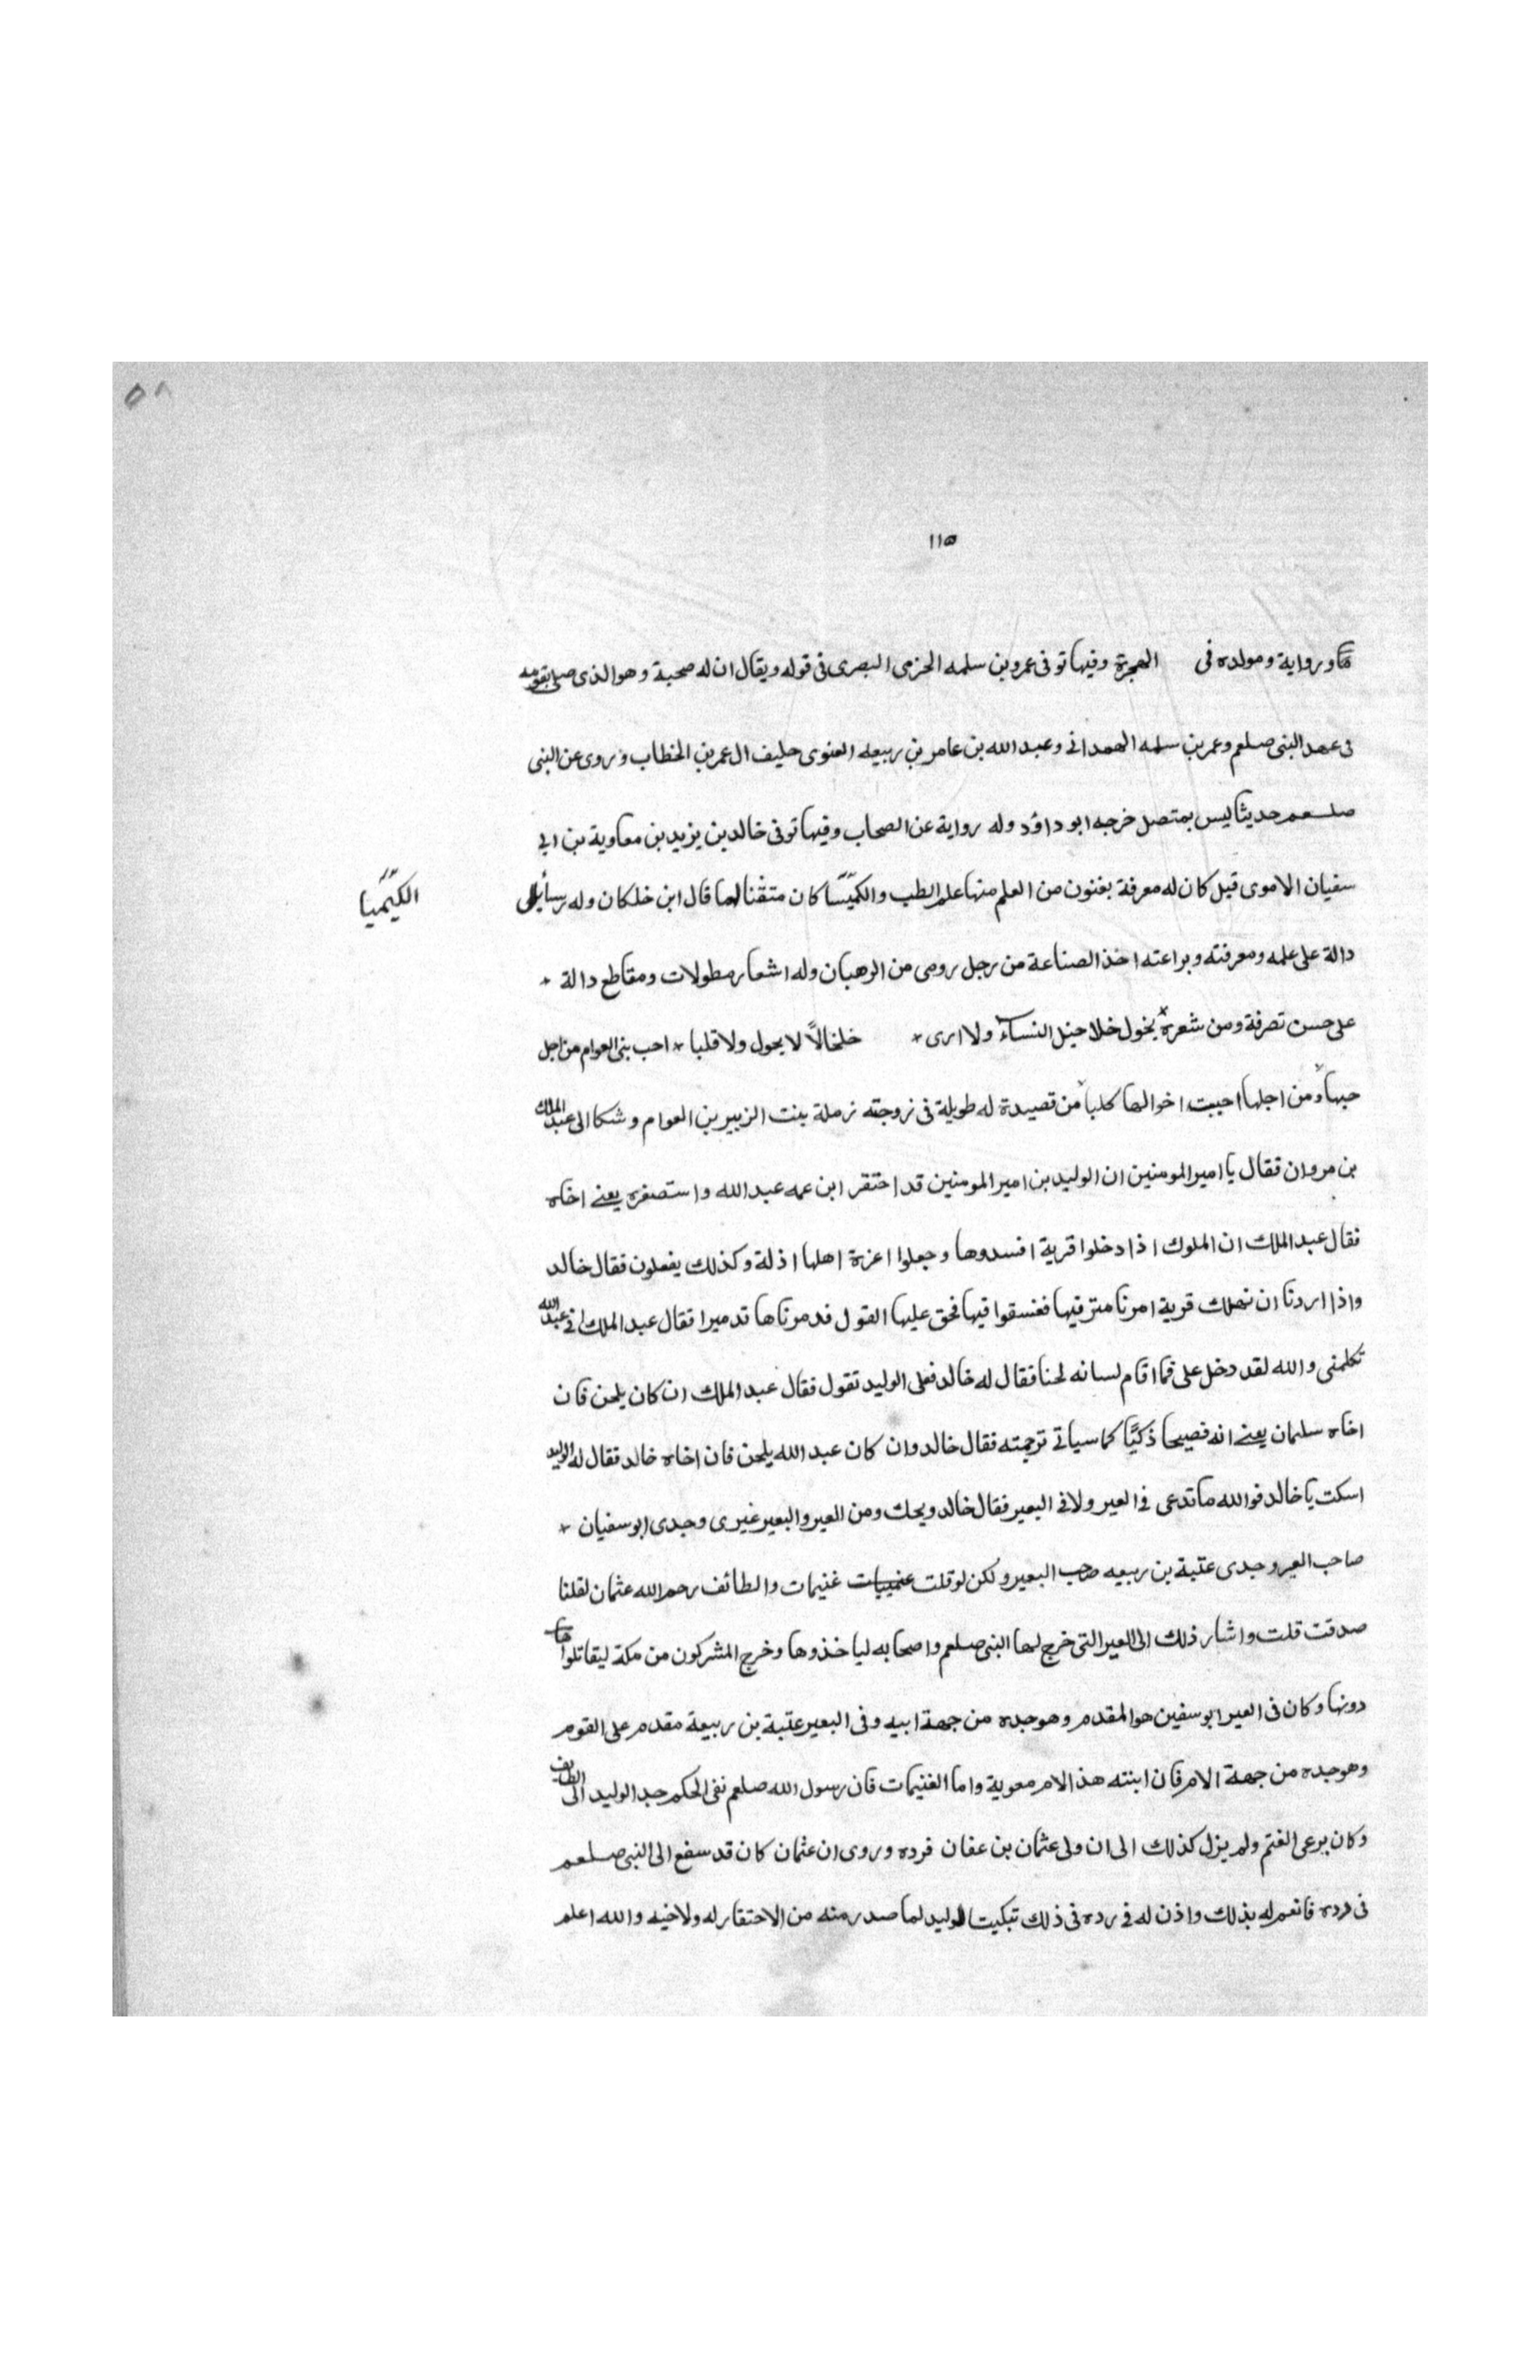 ٥٨
١١٥
ورواية ومولده فى الهجرة وفيها توفى عمرو بن سلمه الجزمى البصرى فى قوله ويقال ان له صحبة وهو الذى صلى بقومه
فى عهد النبى صلعم وعمر بن سلمه الهمدانى وعبد الله بن عامر بن ربيعه العنوى حليف ال عمر بن الخطاب وروى عن النبى
صلعم حديثا ليس بمتصل خرجه ابو داؤد وله رواية عن الصحاب وفيها توفى خالد بن يزيد بن معاوية بن ابى
سفيان الاموى قيل كان له معرفة بفنون من العلم منها علم الطب والكميّسا كان متقنا لهما قال ابن خلكان وله رسأيل
الكيّميا
دالة على علمه ومعرفته وبراعته اخذ الصناعة من رجل رومى من الرهبان وله اشعار مطولات ومقاطع دالة
على حسن تصرفة ومن شعره يخول خلا حيل النساء ولا ارى خلخالاً لا يحول ولا قلبا احب بنى العوام من اجل
حبها ومن اجلها احببت اخوالها كلبا من قصيدة له طويلة فى زوجته رملة بنت الزبير بن العوام وشكا الى عبد الملك
بن مروان فقال يا امير المومنين ان الوليد بن امير المومنين قد احتقر ابن عمه عبد الله واستصغره يعنے اخاه
فقال عبد الملك ان الملوك اذا دخلوا قرية افسدوها وجعلوا اعزة اهلها اذلة وكذلك يفعلون فقال خالد
واذا اردنا ان نهلك قرية امرنا مترفيها ففسقوا فيها فحق عليها القول فدمرناها تدميرا فقال عبد الملك افى عبد الله
تكلمنى والله لقد دخل على فما اقام لسانه لحنا فقال له خالد فعلى الوليد تقول فقال عبد الملك ان كان يلحن فان
اخاه سليمان يعنے انه فصيحا ذكيّا كما سياتى ترجمته فقال خالد وان كان عبد الله يلحن فان اخاه خالد فقال له الوليد
اسكت يا خالد فوالله ما تدعى فى العير ولا فى البعير فقال خالد ويحك ومن العير والبعير غيرى وجدى ابو سفيان
صاحب العير وجدى عتبة بن ربيعه صحب البعير ولكن لو قلت غنيمات والطائف رحم الله عثمان لقلنا
صدقت قلت واشار ذلك الى العير التى خرج لها النبى صلعم واصحابه لياخذوها وخرج المشركون من مكة ليقاتلوا
دونها وكان فى العير ابو سفين هو المقدم وهو جده من جهة ابيه وفى البعير عتبة بن ربيعة مقدم على القوم
وهو جده من جهة الام فان ابنته هذ الام معوية واما الغنيمات فان رسول الله صلعم نفى الحكم جد الوليد الى الطايف
وكان يرعى الغنم ولم يزل كذلك الى ان ولى عثمان بن عفان فرده وروى ان عثمان كان قد سفع الى النبى صلعم
فى رده فانعم له بذلك واذن له فى رده فى ذلك تبكيت الوليد لما صدر منه من الاحتقار له ولاخيه والله اعلم